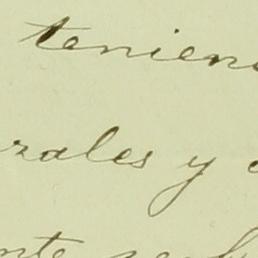 tenien
rales y
nte